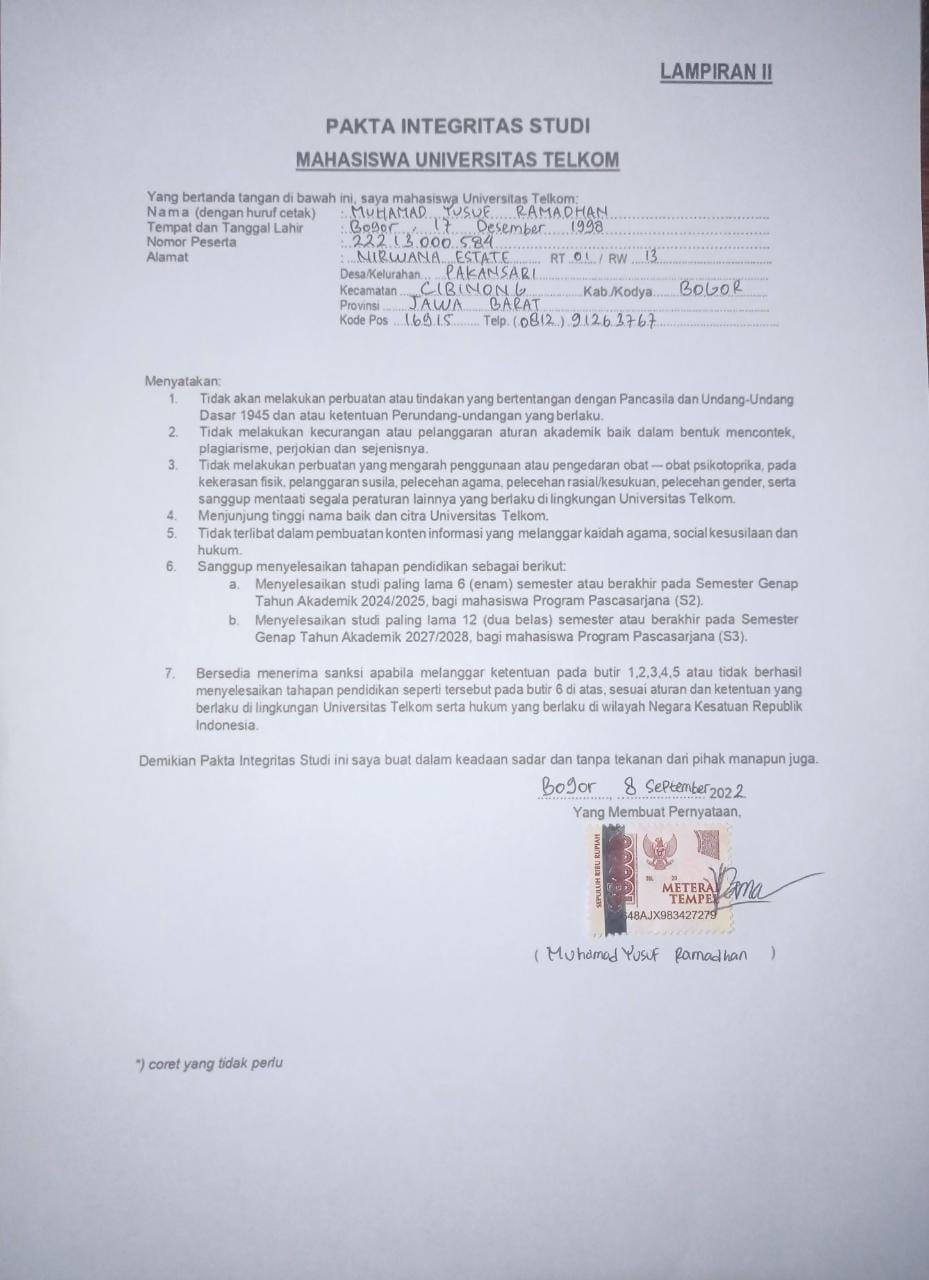 LAMPIRAN II
PAKTA INTEGRITAS STUDI
MAHASISWA UNIVERSITAS TELKOM
Yang bertanda tangan di bawah ini, saya mahasiswa Universitas Telkom:
Nama (dengan huruf cetak) : MUHAMAD YUSUF RAMADHAN
Tempat dan Tanggal Lahir : Bogor, 17 Desember 1998
Nomor Peserta : 222 13.000 584
Alamat : NIRWANA ESTATE RT 01 / RW 13
Desa/Kelurahan PAKANSARI
Kecamatan CIBINONG Kab./Kodya BOGOR
Provinsi JAWA BARAT
Kode Pos 16915 Telp. (0812) 9126 3767
Menyatakan:
1. Tidak akan melakukan perbuatan atau tindakan yang bertentangan dengan Pancasila dan Undang-Undang
Dasar 1945 dan atau ketentuan Perundang-undangan yang berlaku.
2. Tidak melakukan kecurangan atau pelanggaran aturan akademik baik dalam bentuk mencontek,
plagiarisme, perjokian dan sejenisnya.
3. Tidak melakukan perbuatan yang mengarah penggunaan atau pengedaran obat — obat psikotoprika, pada
kekerasan fisik, pelanggaran susila, pelecehan agama, pelecehan rasial/kesukuan, pelecehan gender, serta
sanggup mentaati segala peraturan lainnya yang berlaku di lingkungan Universitas Telkom.
4. Menjunjung tinggi nama baik dan citra Universitas Telkom.
5. Tidak terlibat dalam pembuatan konten informasi yang melanggar kaidah agama, social kesusilaan dan
hukum.
6. Sanggup menyelesaikan tahapan pendidikan sebagai berikut:
a. Menyelesaikan studi paling lama 6 (enam) semester atau berakhir pada Semester Genap
Tahun Akademik 2024/2025, bagi mahasiswa Program Pascasarjana (S2).
b. Menyelesaikan studi paling lama 12 (dua belas) semester atau berakhir pada Semester
Genap Tahun Akademik 2027/2028, bagi mahasiswa Program Pascasarjana (S3).
7. Bersedia menerima sanksi apabila melanggar ketentuan pada butir 1,2,3,4,5 atau tidak berhasil
menyelesaikan tahapan pendidikan seperti tersebut pada butir 6 di atas, sesuai aturan dan ketentuan yang
berlaku di lingkungan Universitas Telkom serta hukum yang berlaku di wilayah Negara Kesatuan Republik
Indonesia.
Demikian Pakta Integritas Studi ini saya buat dalam keadaan sadar dan tanpa tekanan dari pihak manapun juga.
Bogor, 8 September 2022
Yang Membuat Pernyataan,
SEPULUH RIBU RUPIAH
10000
TGL. 20
METERAI
TEMPEL
648AJX983427279
(Muhamad Yusuf Ramadhan)
*) coret yang tidak perlu